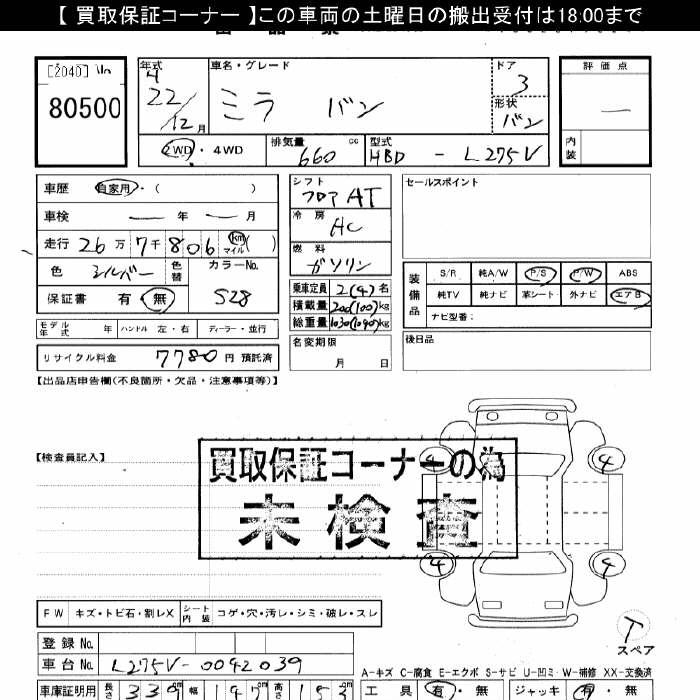 【 買取保証コーナー 】この車両の土曜日の搬出受付は18:00まで
[2040]
80500
年式
22/12月
車名・グレード
ミラ バン
ドア
3
形状
バン
評価点
―
内装
2WD・4WD
排気量
660 cc
型式
HBD - L275V
車歴 自家用・( )
車検 ― 年 ― 月
走行 26万7千806 km マイル ( )
色 シルバー 色替
カラーNo.
S28
保証書 有・無
シフト
フロア AT
冷房
AC
燃料
ガソリン
乗車定員 2(4)名
積載量 200(100)kg
総重量 1030(1090)kg
名変期限
月 日
セールスポイント
装備品
S/R 純A/W P/S P/W ABS
純TV 純ナビ 革シート 外ナビ エアB
ナビ型番:
後日品
モデル年式 年 ハンドル 左・右 ディーラー・並行
リサイクル料金 7780 円 預託済
【出品店申告欄(不良箇所・欠品・注意事項等)】
【検査員記入】
買取保証コーナーの為
未検査
4
4
4
4
FW キズ・トビ石・割レX シート内装 コゲ・穴・汚レ・シミ・破レ・スレ
T
スペア
登録No.
車台No. L275V-0042039
A-キズ C-腐食 E-エクボ S-サビ U-凹ミ W-補修 XX-交換済
車庫証明用 長さ 339 cm 幅 147 cm 高さ 153 cm
工具 有・無 ジャッキ 有・無